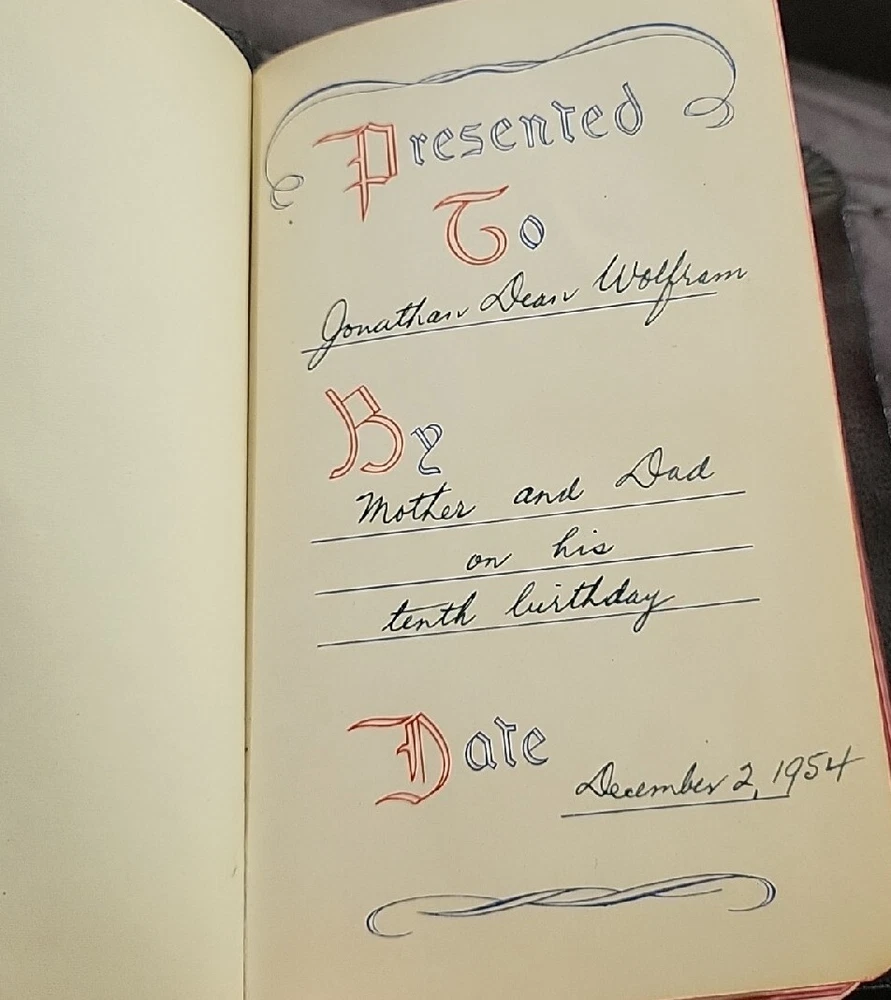 Presented
To
Jonathan Dean Wolfram
By
Mother and Dad
on his
tenth birthday
Date
December 2, 1954